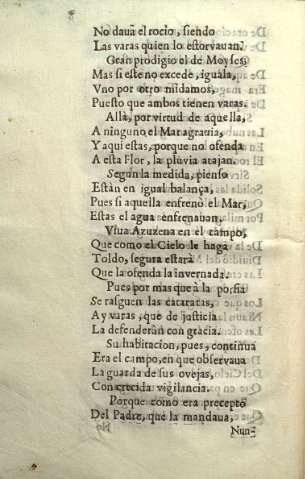 No dauã el rocìo, siendo
Las varas quien lo estorvauan.
Gran prodigio el de Moyses,
Mas si este no excede, iguala,
Vno por otro midamos,
Puesto que ambos tienen varas.
Allà, por virtud de aquella,
A ninguno el Mar agrauia,
Y aqui estas, porque no ofenda
A esta Flor, la pluvia atajan.
Según la medida, pienso
Estàn en igual balança,
Pues si aquella enfrenò el Mar,
Estas el agua enfrenauan.
Viua Azuzena en el campo,
Que como el Cielo le haga
Toldo, segura estarà
Que la ofenda la invernada.
Pues por mas que à la porfia
Se rasguen las cataratas,
Ay varas, que de justicia
La defenderàn con gracia.
Su habitacion, pues, continua
Era el campo, en que observaua
La guarda de sus ovejas,
Con crecida vigilancia.
Porque como era precepto
Del Padre, que la mandaua,
Nun-